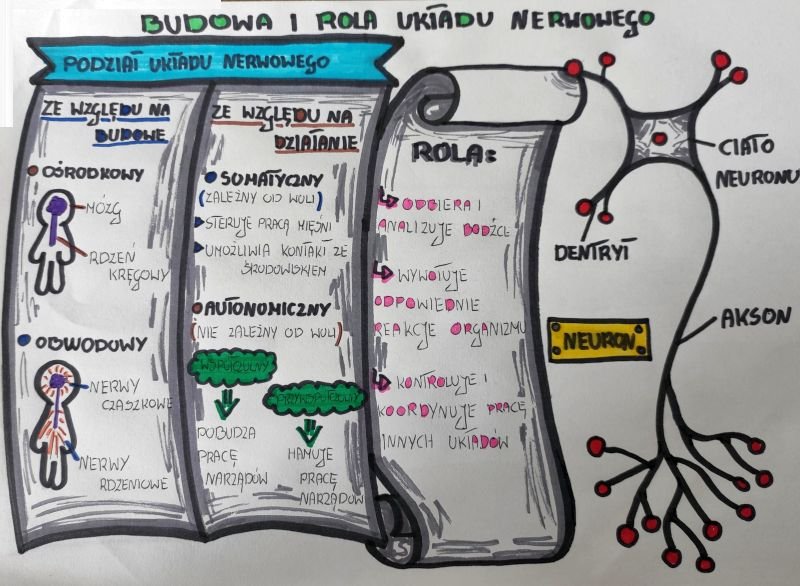 BUDOWA I ROLA UKŁADU NERWOWEGO
PODZIAŁ UKŁADU NERWOWEGO
ZE WZGLĘDU NA
BUDOWĘ
OŚRODKOWY
MÓZG
RDZEŃ
KRĘGOWY
OBWODOWY
NERWY
CZASZKOWE
NERWY
RDZENIOWE
ZE WZGLĘDU NA
DZIAŁANIE
SOMATYCZNY
(ZALEŻNY OD WOLI)
STERUJE PRACĄ MIĘŚNI
UMOŻLIWIA KONTAKT ZE
ŚRODOWISKIEM
AUTONOMICZNY
(NIE ZALEŻNY OD WOLI)
WSPÓŁCZULNY
POBUDZA
PRACĘ
NARZĄDÓW
PRZYWSPÓŁCZULNY
HAMUJE
PRACĘ
NARZĄDÓW
ROLA:
ODBIERA I
ANALIZUJE BODŹCE
WYWOŁUJE
ODPOWIEDNIE
REAKCJE ORGANIZMU
KONTROLUJE I
KOORDYNUJE PRACĘ
INNYCH UKŁADÓW
CIAŁO
NEURONU
DENTRYT
AKSON
NEURON